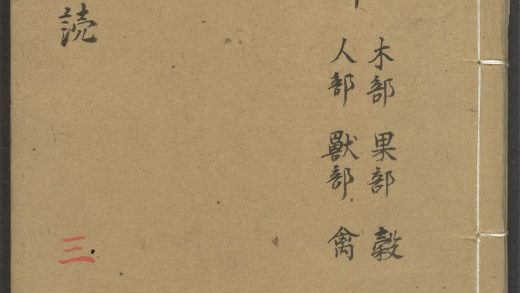 木部 果部 穀
人部 獸部 禽
読
三